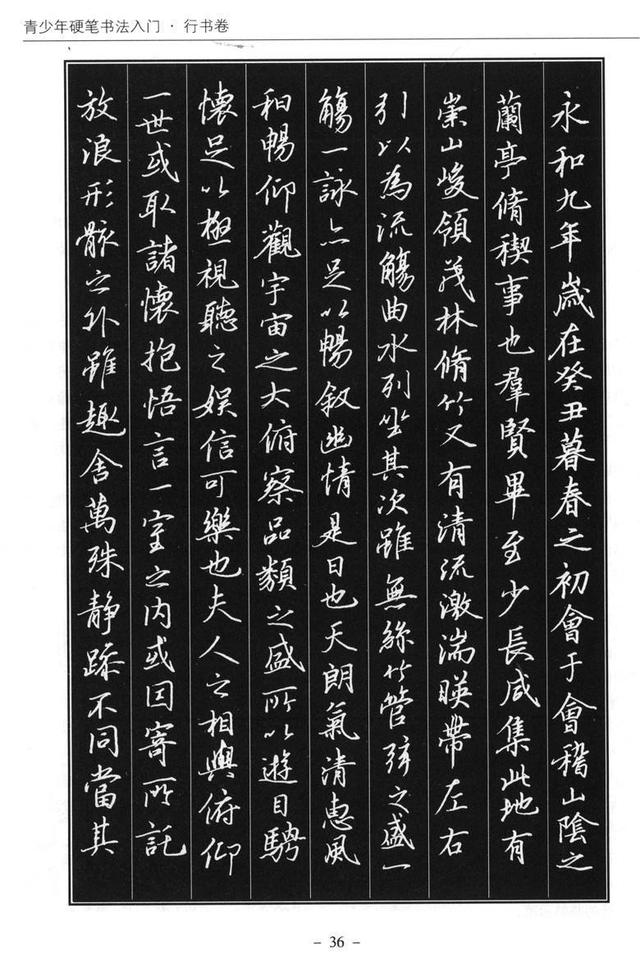 青少年硬笔书法入门 · 行书卷
永和九年歲在癸丑暮春之初會于會稽山陰之
蘭亭脩稧事也羣賢畢至少長咸集此地有
崇山峻領茂林脩竹又有清流激湍暎帶左右
引以為流觴曲水列坐其次雖無絲竹管弦之盛一
觴一詠亦足以暢叙幽情是日也天朗氣清惠風
和暢仰觀宇宙之大俯察品類之盛所以遊目騁
懷足以極視聽之娱信可樂也夫人之相與俯仰
一世或取諸懷抱悟言一室之内或因寄所託
放浪形骸之外雖趣舍萬殊静躁不同當其
- 36 -